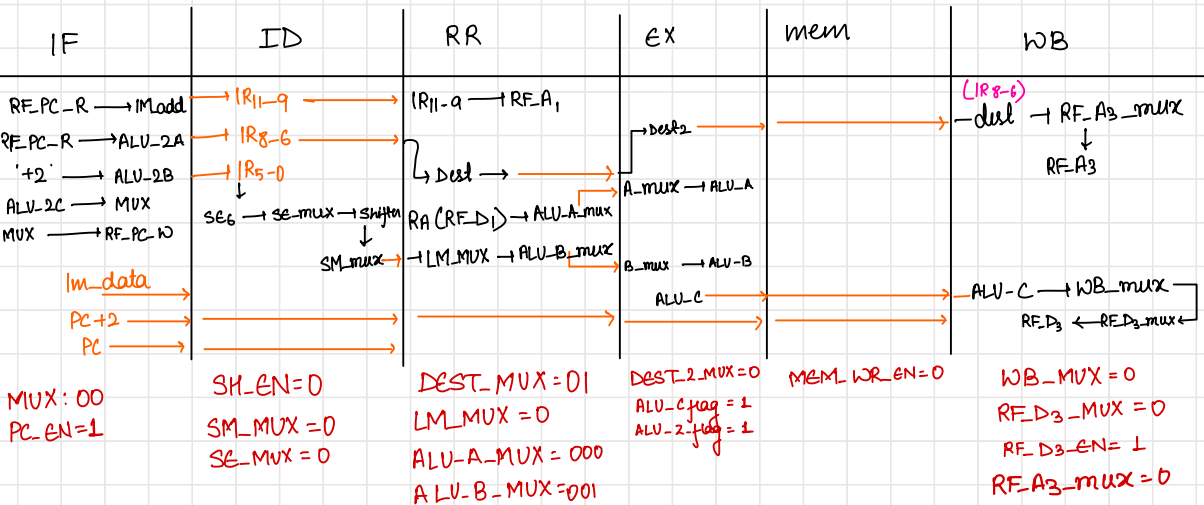 IF
RF_PC_R → IM_add
RF_PC_R → ALU_2A
'+2' → ALU_2B
ALU_2C → MUX
MUX → RF_PC_W
Im_data
PC+2
PC
MUX: 00
PC_EN=1
ID
IR11-9
IR8-6
IR5-0
SE6 → SE_mux → Shifter
SM_mux
SH_EN=0
SM_MUX=0
SE_MUX=0
RR
IR11-9 → RF_A1
Dest →
RA (RF_D1) → ALU_A_mux
→ LM_MUX → ALU_B_mux
DEST_MUX=01
LM_MUX=0
ALU_A_MUX=000
ALU_B_MUX=001
EX
→ Dest2
A_mux → ALU_A
B_mux → ALU-B
ALU_C
DEST_2_MUX=0
ALU_C flag = 1
ALU-2-flag = 1
mem
MEM_WR_EN=0
WB
(IR8-6)
dest → RF_A3_mux
RF_A3
ALU-C → WB_mux
RF_D3 ← RF_D3_mux
WB_MUX=0
RF_D3_MUX=0
RF_D3_EN=1
RF_A3_mux=0